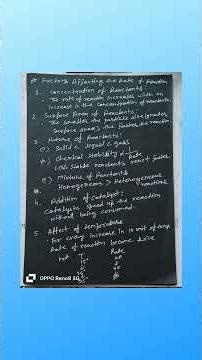 * Factors Affecting the Rate of Reaction
1. Concentration of Reactants
- The rate of reaction increases with an
increase in the concentration of reactants.
2. Surface Area of Reactants:
- The smaller the particle size, greater
surface area, the faster the reaction
3. Nature of Reactants:
a) Solid < liquid < gas
b) Chemical stability
Less stable reactants react faster
c) Mixture of Reactants
Homogeneous > Heterogeneous
reactions
4. Addition of Catalyst:
Catalysts speed up the reaction
without being consumed.
5. Affect of Temperature
- For every increase in 10 unit of temp
Rate of reaction become twice
Rate
OPPO Reno8 5G